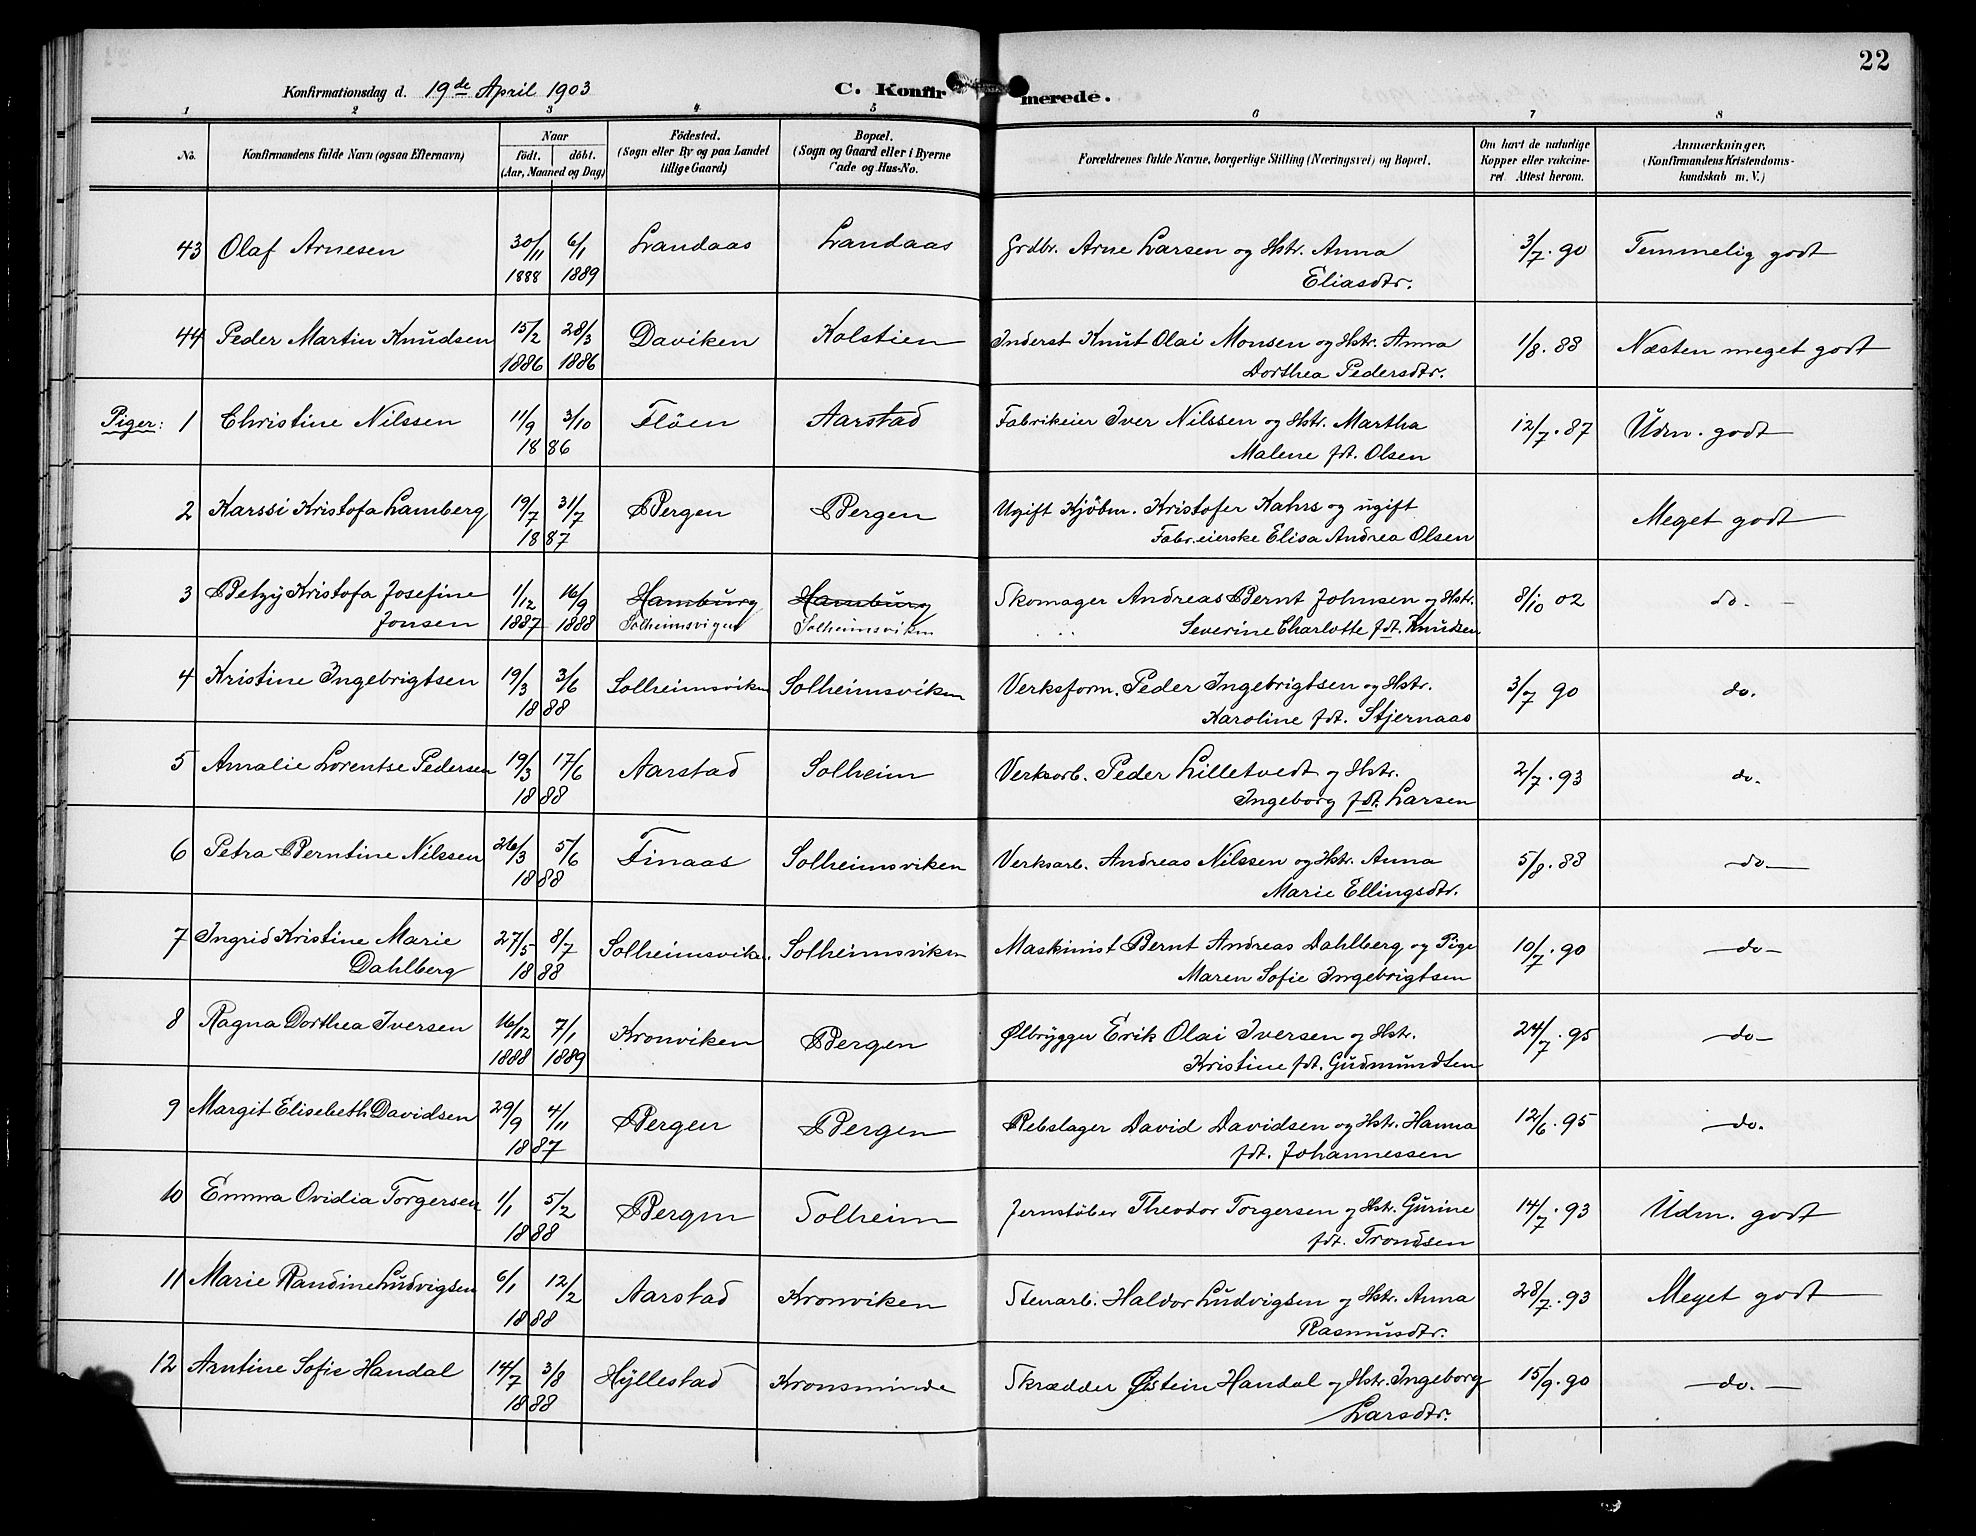 22
Konfirmationsdag d. 19de April 1903
C. Konfir merede.
1 2 3 4 5 6 7 8
No. Konfirmandens fulde Navn (ogsaa Efternavn) Naar Födested. Bopæl. Forældrenes fulde Navne, borgerlige Stilling (Næringsvei) og Bopæl. Om havt de naturlige Anmærkninger,
födt. döbt. (Sogn eller By og paa Landet (Sogn og Gaard eller i Byerne Kopper eller vakcine- (Konfirmandens Kristendoms-
(Aar, Maaned og Dag) tillige Gaard) Gade og Hus-No. ret. Attest herom. kundskab m. V.)
43 Olaf Arnesen 30/11 6/1 Landaas Landaas Grdbr. Arne Larsen og Hstr. Anna 3/7. 90 Temmelig godt
1888 1889 Eliasdtr.
44 Peder Martin Knudsen 15/2 28/3 Daviken Kolstien Inderst Knut Olai Monsen og Hstr. Anna 1/8. 88 Næsten meget godt
1886 1886 Dorthea Pedersdtr.
Piger: 1 Christine Nilssen 11/9 3/10 Flöen Aarstad Fabrikeier Iver Nilssen og Hstr. Martha 12/7. 87 Udm. godt
1886 Malene fdt. Olsen
2 Karssi Kristofa Lamberg 19/7 31/7 Bergen Bergen Ugift Kjöbm. Kristofer Kahrs og ugift Meget godt
1887 Fabr.eierske Elisa Andrea Olsen
3 Betzy Kristofa Josefine 1/12 16/9 Hamburg Hamburg Skomager Andreas Bernt Johnsen og Hstr. 8/10 02 do. -
Jonsen 1887 1888 Solheimsvigen Solheimsviken Severine Charlotte fdt. Knudsen
4 Kristine Ingebrigtsen 19/3 3/6 Solheimsviken Solheimsviken Verksform. Peder Ingebrigtsen og Hstr. 3/7 90 do.
1888 Karoline fdt. Stjernaas
5 Amalie Lorentse Pedersen 19/3 17/6 Aarstad Solheim Verksarb. Peder Lilletvedt og Hstr. 2/7. 93 do.
1888 Ingeborg fdt. Larsen
6 Petra Berntine Nilssen 26/3 5/6 Finaas Solheimsviken Verksarb. Andreas Nilssen og Hstr. Anna 5/8. 88 do
1888 Marie Ellingsdtr.
7 Ingrid Kristine Marie 27/5 8/7 Solheimsviken Solheimsviken Maskinist Bernt Andreas Dahlberg og Pige 10/7. 90 do
Dahlberg 1888 Maren Sofie Ingebrigtsen
8 Ragna Dorthea Iversen 16/12 7/1 Kronviken Bergen Ølbrygger Erik Olai Iversen og Hstr. 24/7. 95 do
1888 1889 Kristine fdt. Gudmundsen
9 Margit Elisebeth Davidsen 29/9 4/11 Bergen Bergen Rebslager David Davidsen og Hstr. Hanna 12/6. 95 do.
1887 fdt. Johannessen
10 Emma Ovidia Torgersen 1/1 5/2 Bergen Solheim Jernstöber Theodor Torgersen og Hstr. Gurine 14/7. 93 Udm. godt
1888 fdt. Trondsen
11 Marie Randine Ludvigsen 6/1 12/2 Aarstad Kronviken Stenarb. Haldor Ludvigsen og Hstr. Anna 28/7. 93 Meget godt
1888 Rasmusdtr.
12 Arntine Sofie Handal 14/7 3/8 Hyllestad Kronsminde Skrædder Østein Handal og Hstr. Ingeborg 15/9. 90 do.
1888 Larsdtr.